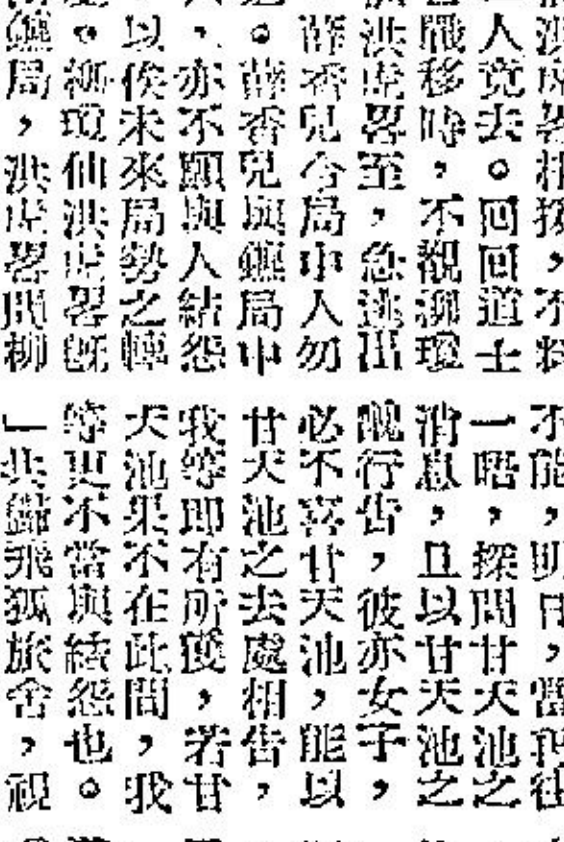 洪虎畧相，不料
人竟去。回回道士
戰移時，不覩柳瓊
洪虎畧至，急逃出
薛香兒令局中人勿
。薛香兒與鏢局中
，亦不願與人結怨
以俟未來局勢之轉
。柳瓊仙洪虎畧既
鏢局，洪虎畧問柳
不能，明日，當再往
一晤，探問甘天池之
消息，且以甘天池之
醜行告，彼亦女子，
必不喜甘天池，能以
甘天池之去處相告，
我等即有所獲，若甘
天池果不在此間，我
等更不當與結怨也。
」共歸飛狐旅舍，視